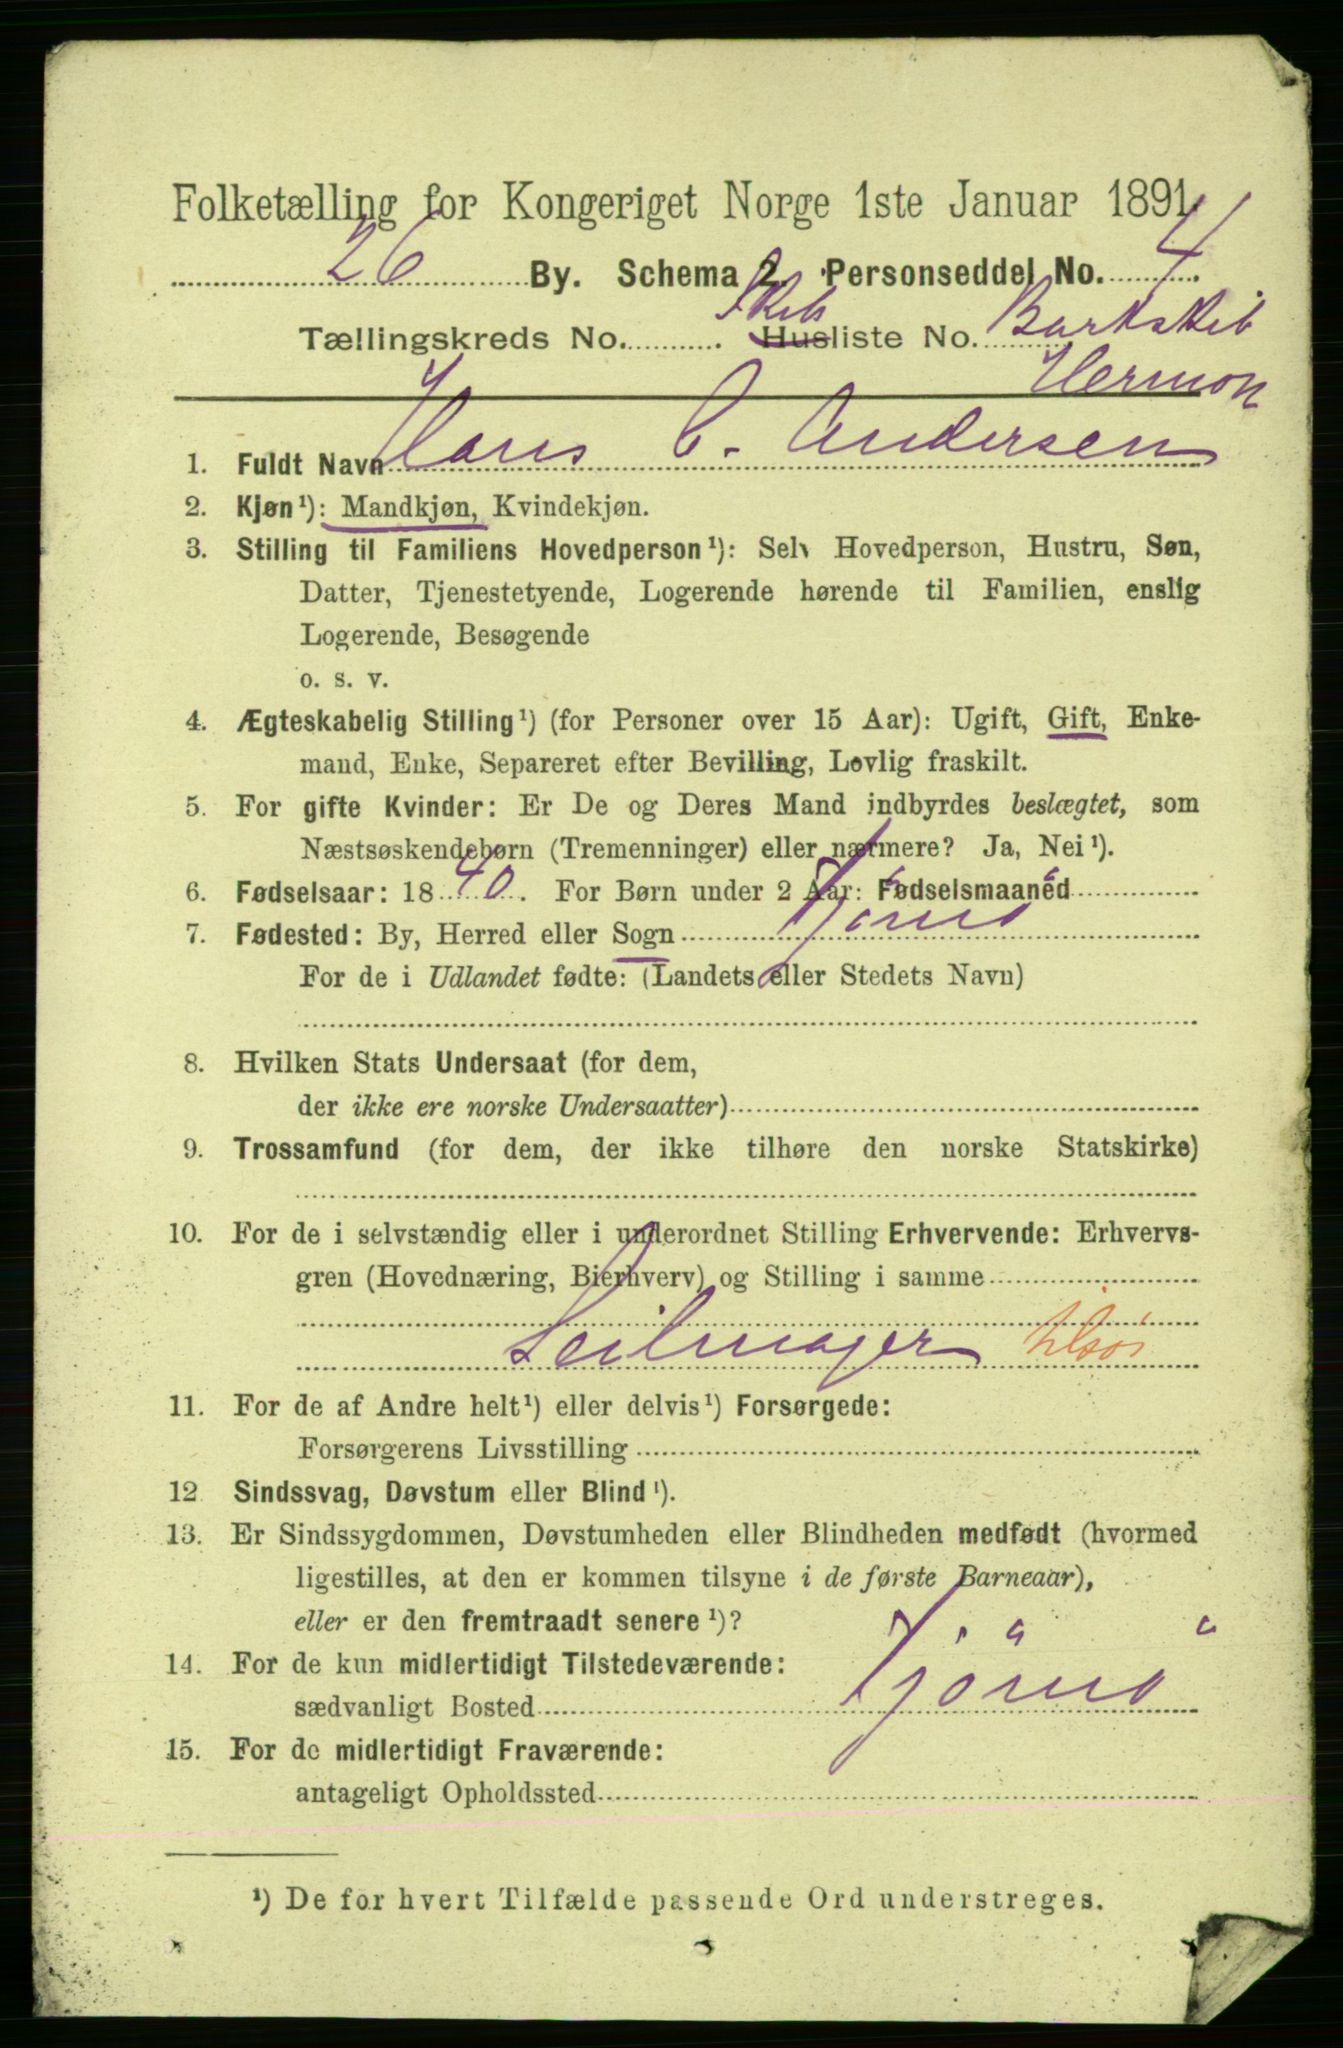 Folketælling for Kongeriget Norge 1ste Januar 1891.
26 By. Schema 2. Personseddel No. 4
Tællingskreds No. Skibs Husliste No. Barkskib
Hermon
1. Fuldt Navn Hans C. Andersen
2. Kjøn¹): Mandkjøn, Kvindekjøn.
3. Stilling til Familiens Hovedperson¹): Selv Hovedperson, Hustru, Søn,
Datter, Tjenestetyende, Logerende hørende til Familien, enslig
Logerende, Besøgende
o. s. v.
4. Ægteskabelig Stilling¹) (for Personer over 15 Aar): Ugift, Gift, Enke-
mand, Enke, Separeret efter Bevilling, Lovlig fraskilt.
5. For gifte Kvinder: Er De og Deres Mand indbyrdes beslægtet, som
Næstsøskendebørn (Tremenninger) eller nærmere? Ja, Nei¹).
6. Fødselsaar: 1840. For Børn under 2 Aar: Fødselsmaaned
7. Fødested: By, Herred eller Sogn Tjömö
For de i Udlandet fødte: (Landets eller Stedets Navn)
8. Hvilken Stats Undersaat (for dem,
der ikke ere norske Undersaatter)
9. Trossamfund (for dem, der ikke tilhøre den norske Statskirke)
10. For de i selvstændig eller i underordnet Stilling Erhvervende: Erhvervs-
gren (Hovednæring, Bierhverv) og Stilling i samme
Seilmager
11. For de af Andre helt¹) eller delvis¹) Forsørgede:
Forsørgerens Livsstilling
12 Sindssvag, Døvstum eller Blind¹).
13. Er Sindssygdommen, Døvstumheden eller Blindheden medfødt (hvormed
ligestilles, at den er kommen tilsyne i de første Barneaar),
eller er den fremtraadt senere¹)?
14. For de kun midlertidigt Tilstedeværende:
sædvanligt Bosted Tjömö
15. For de midlertidigt Fraværende:
antageligt Opholdssted
¹) De for hvert Tilfælde passende Ord understreges.